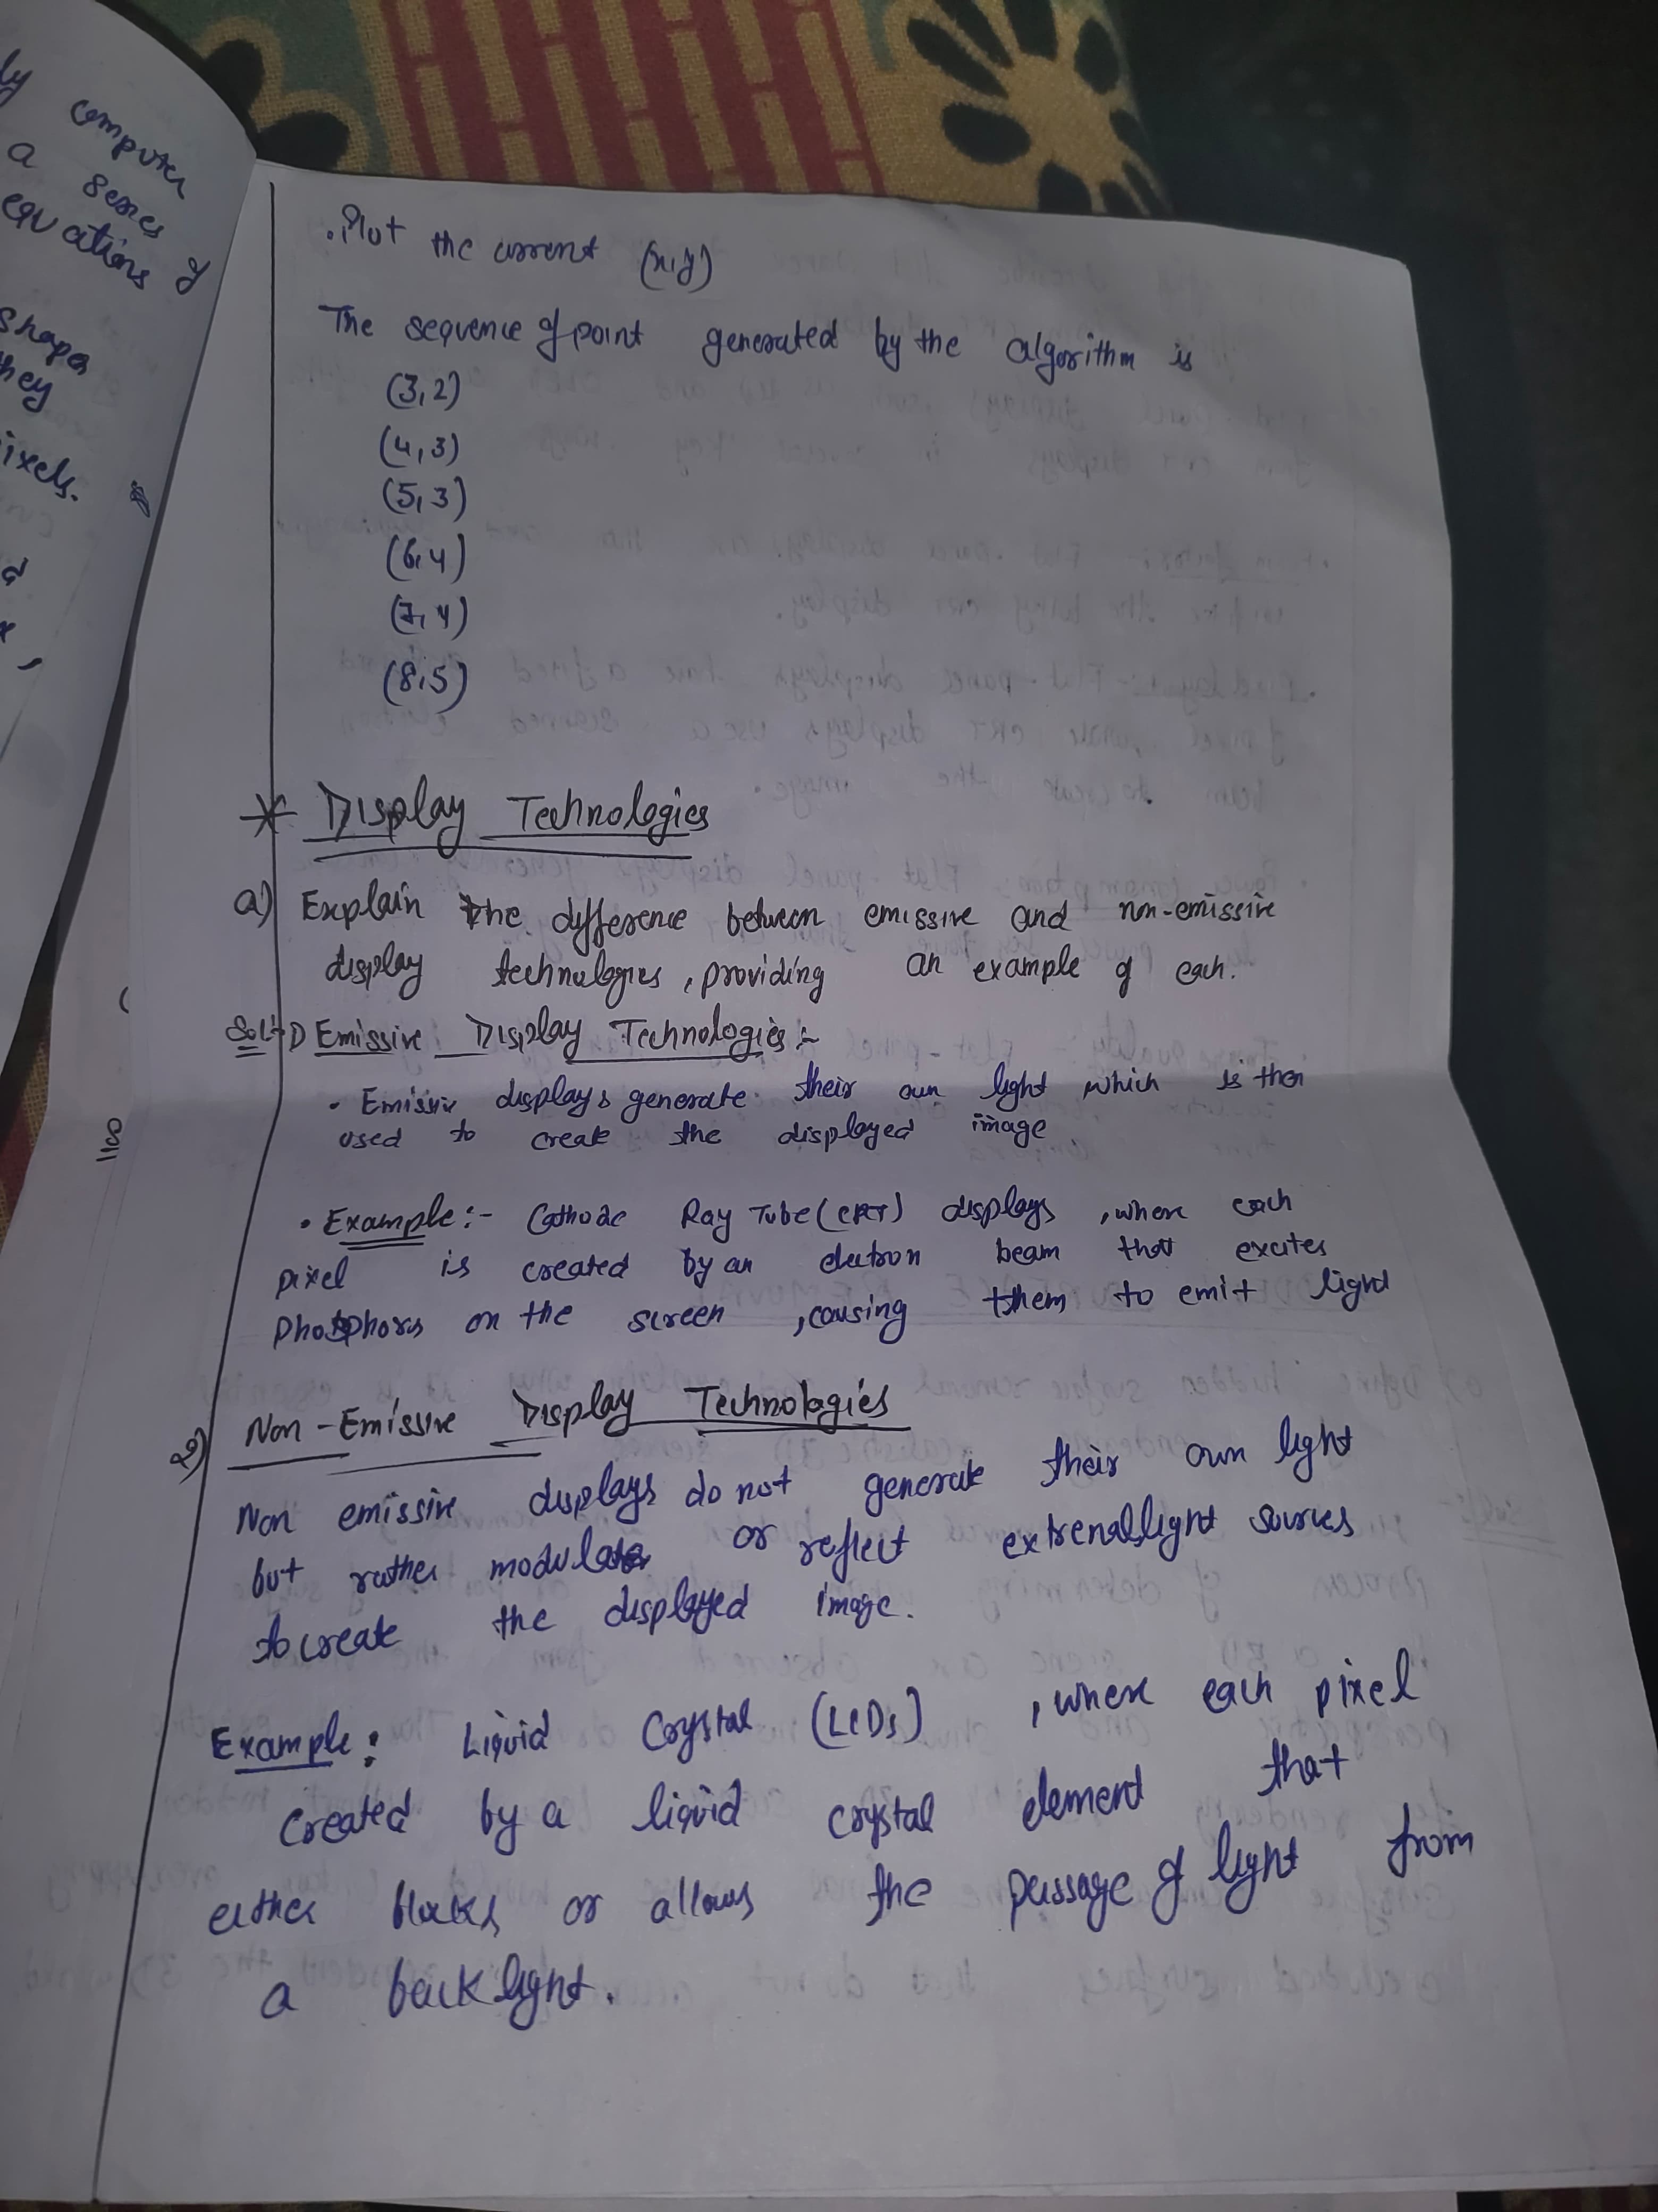 ly computer
a series of
equations
shapes
they
ixels.
.Plot the current (x,y)
The sequence of point generated by the algorithm is
(3,2)
(4,3)
(5,3)
(6,4)
(7,4)
(8,5)
* Display Technologies
a) Explain the difference between emissive and non-emissive
display technologies, providing an example of each.
Sol:- 1) Emissive Display Technologies :-
• Emissive displays generate their own light which is then
used to create the displayed image
• Example :- Cathode Ray Tube (CRT) displays, where each
pixel is created by an electron beam that excites
Phosphors on the screen, causing them to emit light
2) Non-Emissive Display Technologies
Non emissive displays do not generate their own light
but rather modulate or reflect extrenal light sources
to create the displayed image.
Example: Liquid Crystal (LCDs) , where each pixel
created by a liquid crystal element that
either blocks or allows the passage of light from
a backlight.